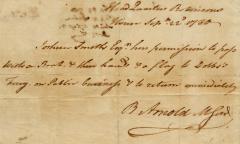 Head Quarters Robinsons
House Sepr. 22d 1780
Joshua Smith Esqr. has permission to pass
with a Boat & three hands & a flag to Dobbs
Ferry on Public business & to return immediately
B Arnold M Genl